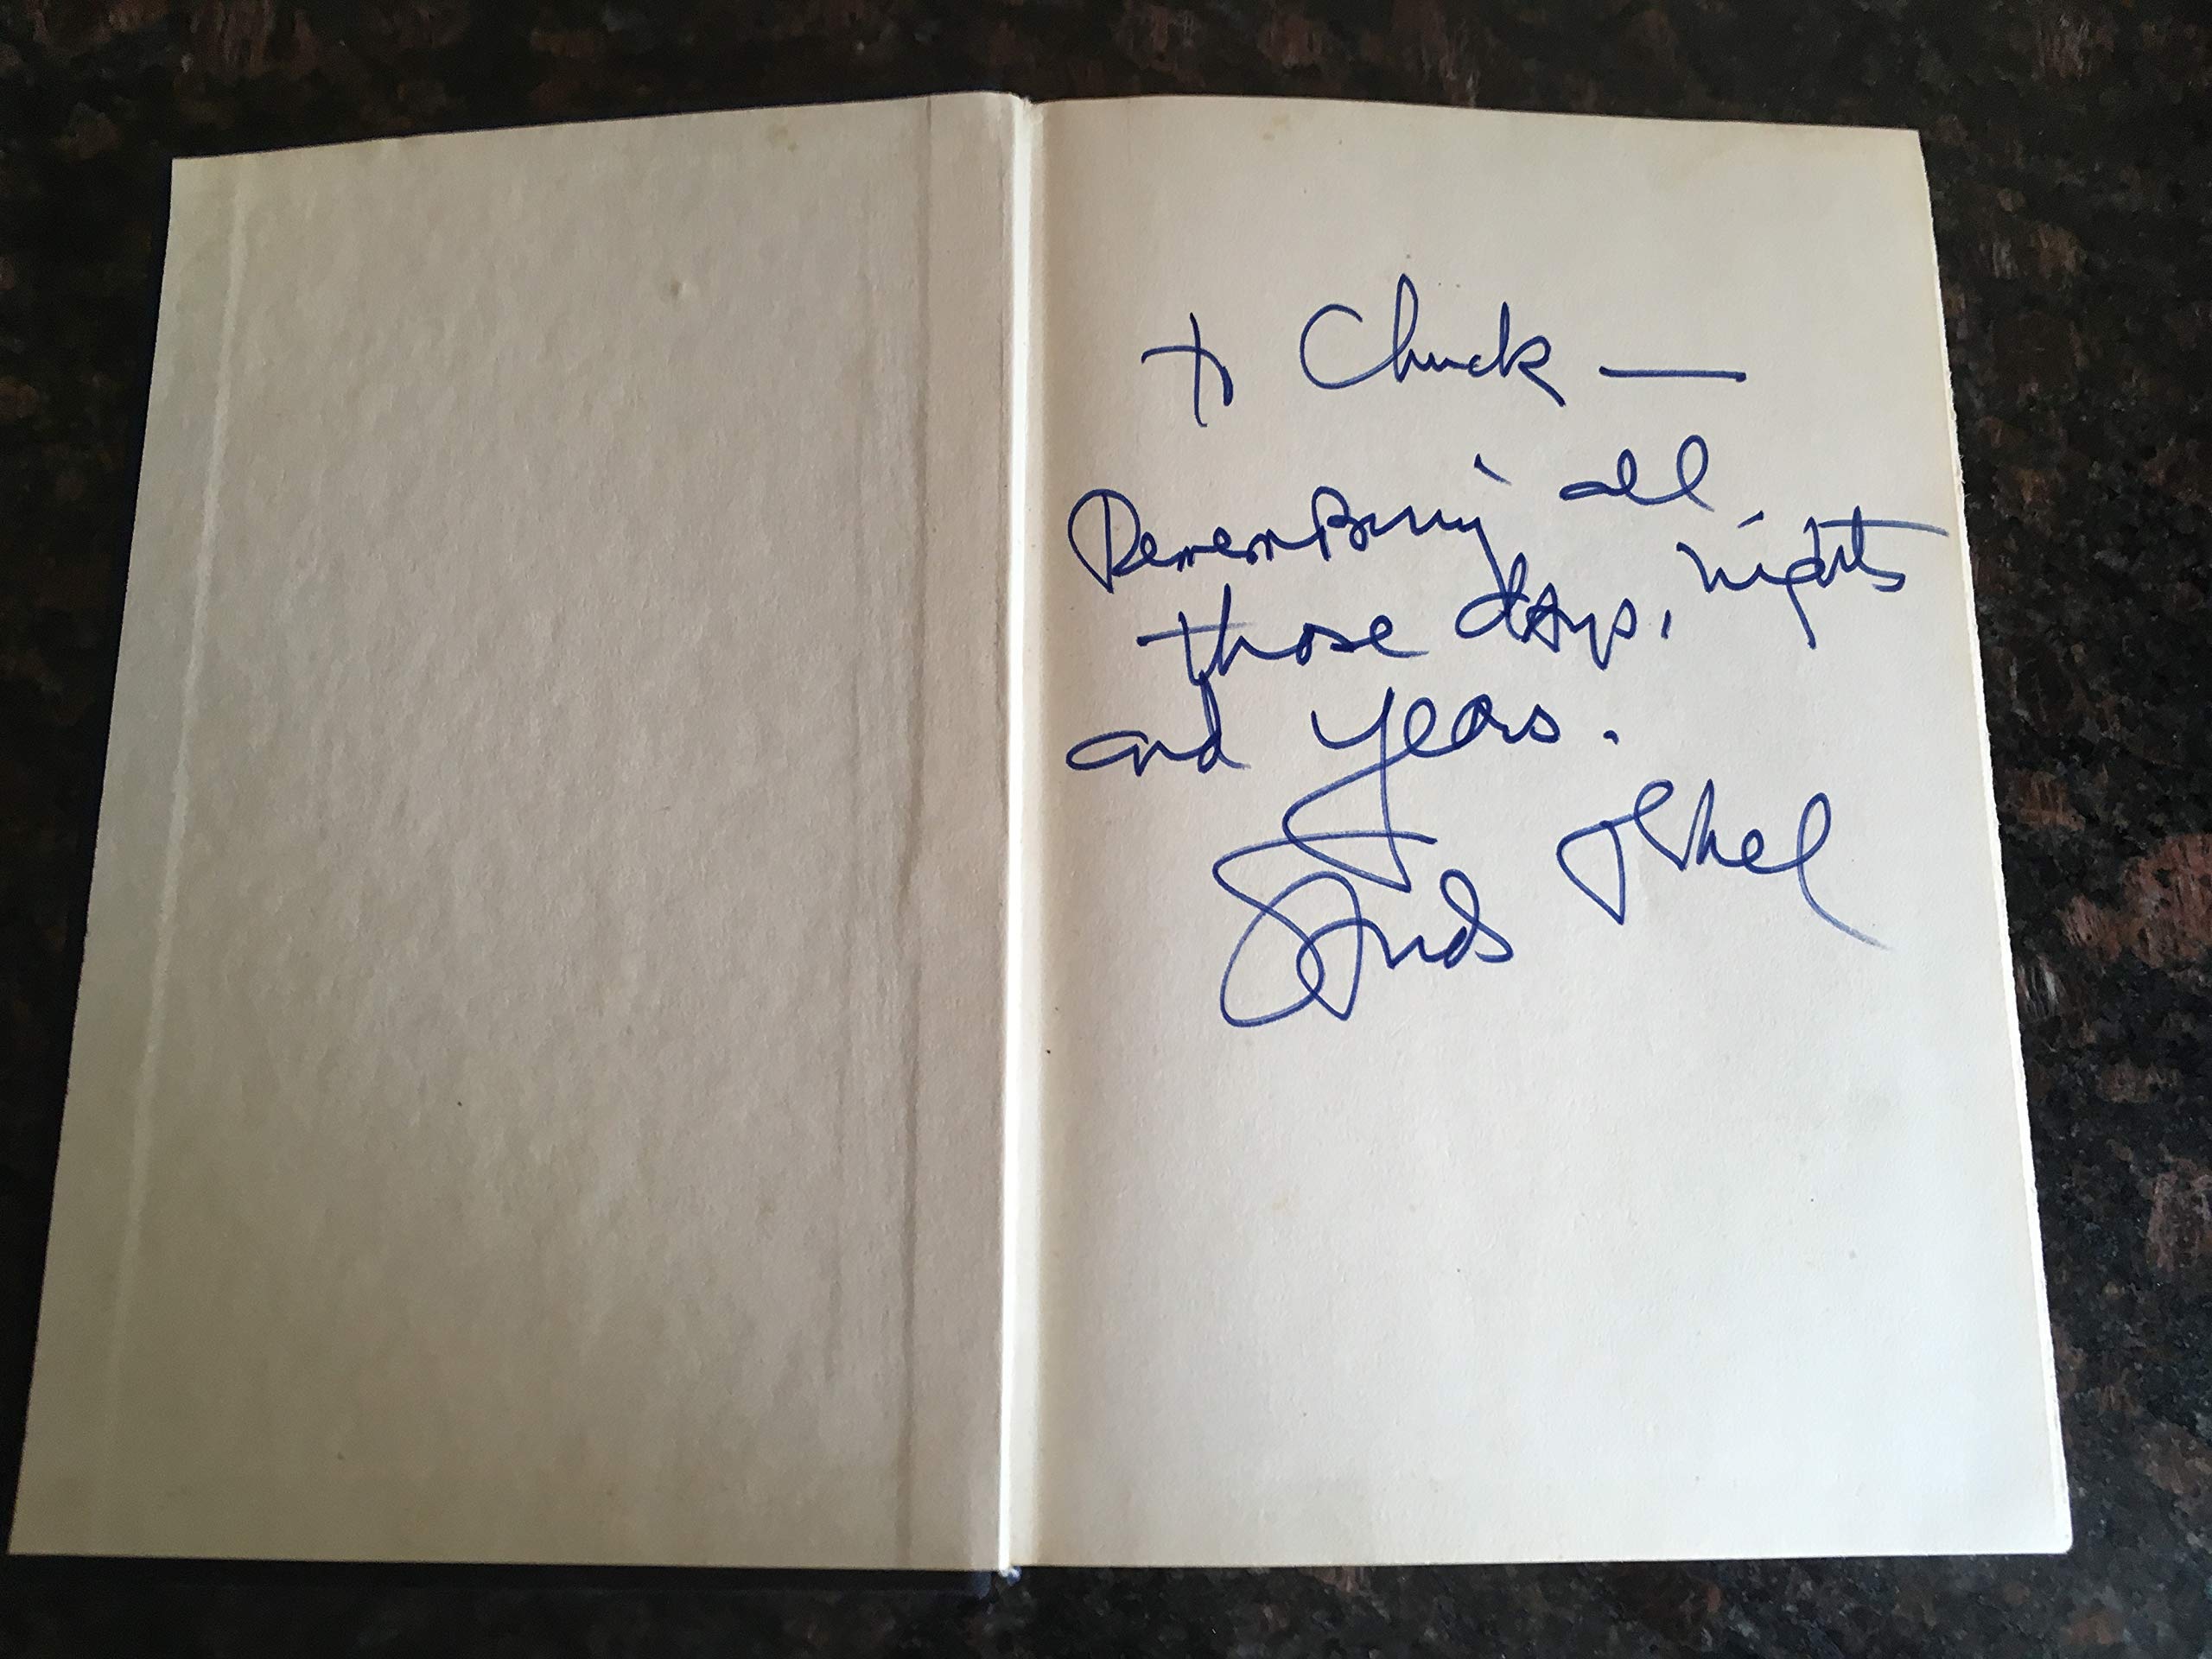 to Chuck —
Remembering all
those days, nights
and years.
Studs Terkel